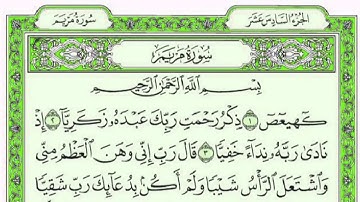 سُورَةُ مَرۡيَمَ الجُزۡءُ السَّادِسَ عَشَرَ
سُورَةُ مَرۡيَمَ
بِسۡمِ ٱللَّهِ ٱلرَّحۡمَٰنِ ٱلرَّحِيمِ
كٓهيعٓصٓ ١ ذِكۡرُ رَحۡمَتِ رَبِّكَ عَبۡدَهُۥ زَكَرِيَّآ ٢ إِذۡ
نَادَىٰ رَبَّهُۥ نِدَآءً خَفِيّٗا ٣ قَالَ رَبِّ إِنِّي وَهَنَ ٱلۡعَظۡمُ مِنِّي
وَٱشۡتَعَلَ ٱلرَّأۡسُ شَيۡبٗا وَلَمۡ أَكُنۢ بِدُعَآئِكَ رَبِّ شَقِيّٗا